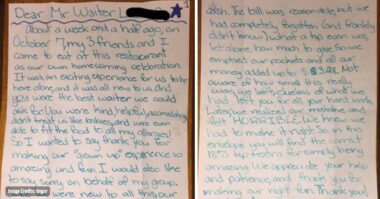 Dear Mr Waiter L
About a week and a half ago, on
October 7, my 3 friends and I
came to eat at this restaurant
as our own homecoming celebration.
It was an exciting experience for us to be
here alone, and it was all new to us. and
you were the best waiter we could
ask for. You were kind, helpful, accomodating
didn't treat us like babies, and were even
able to fit the food to all my allergies!
So I wanted to say thank you for
making our "grown up" experience so
amazing and fun. I would also like
to say sorry on behalf of my group.
were new to all this, our
Image Credits: Imgur
dish. The bill was reasonable, but we
had completely forgotten (and frankly
didn't know) what a tip even was,
let alone how much to give. So we
emptied our pockets and all our
money added up to: $3.28. Not
aware of how small this really
was, we left, clueless of what we
had left you for all your hard work.
Later, we realized our mistake and
felt HORRIBLE. We knew we
had to make it right. So in this
envelope you will find the correct
18% tip, extra for simply being
amazing. We appreciate your help
and patience, and thank you for
making our night fun. Thank you!